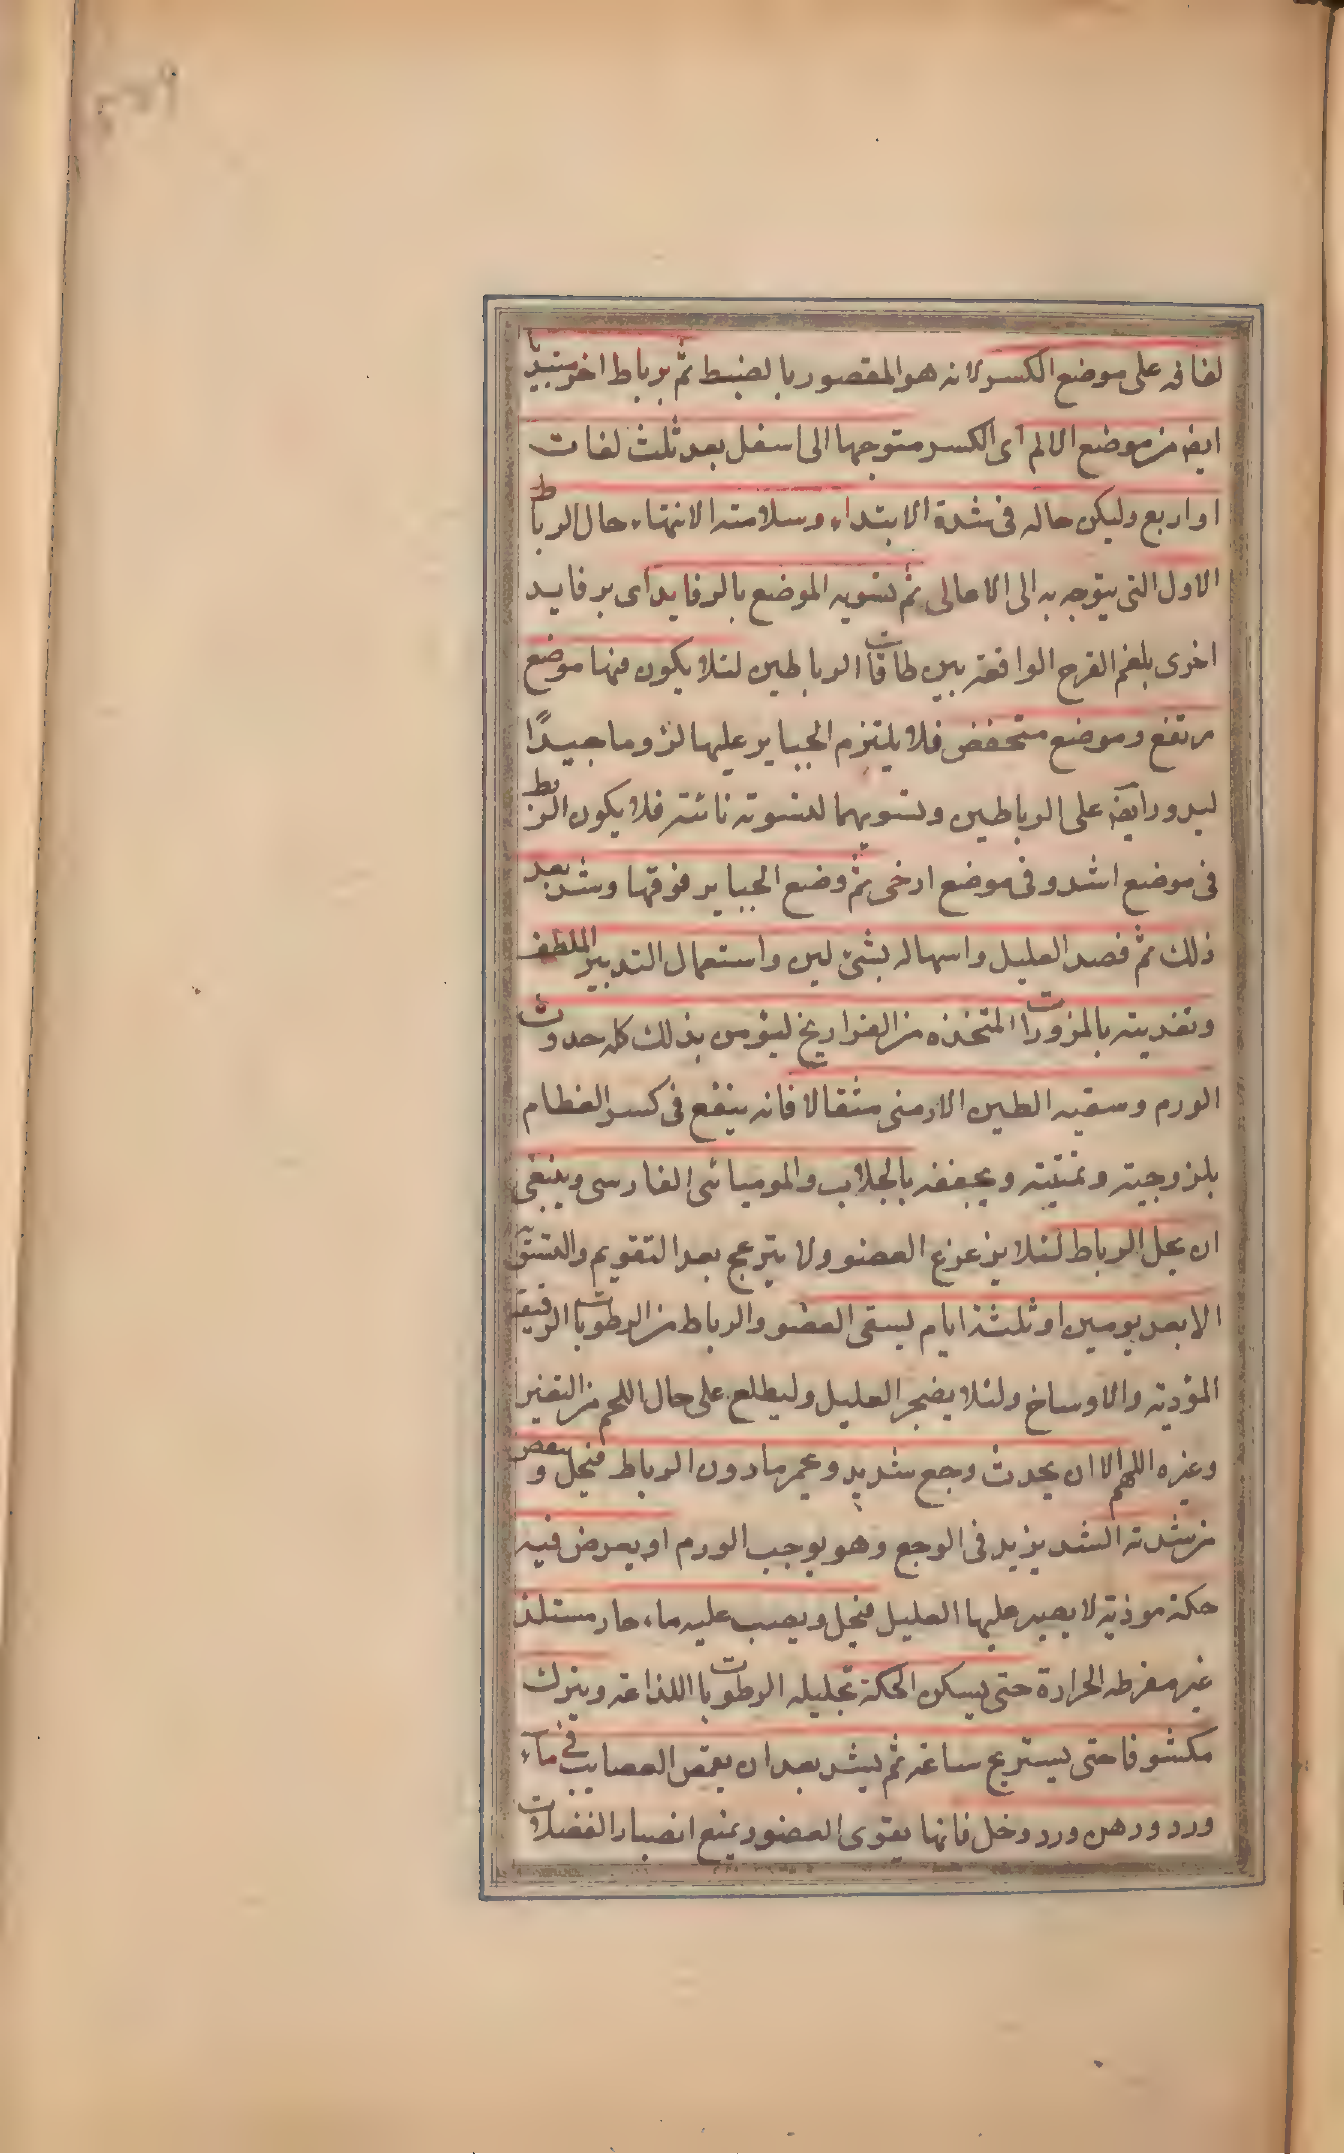 لفافه على موضع الكسر لانه هو المقصور بالضبط ثم برباط اخر مبتديا
ايضا من موضع الالم اى الكسر متوجها الى اسفل بعد ثلث لفات
او اربع وليكن حاله فى شدة الابتداء وسلامته الانتهاء حال الرباط
الاول التى يتوجه به الى الاعالى ثم تسويه الموضع بالرفايد اى برفايد
اخرى بلغم الفرج الواقعة بين طاقات الرباطين لئلا يكون منها موضع
مرتفع وموضع منخفض فلا يلتزم الجباير عليها لزوما جيدًا
ليدور ايضا على الرباطين وتسويهما لتسوته ناتئة فلا يكون الربط
فى موضع اشد وفى موضع ارخى ثم وضع الجباير فوقها وشد بعد
ذلك ثم فصد العليل واسهاله بشئ لين واستعمال التدبير الملطف
وتغذيته بالمزورات المتخذه من الفراريخ ليؤمن بذلك كله حدوث
الورم وسقيه الطين الارمنى مثقالا فانه ينفع فى كسر العظام
بلزوجيته وتمتيته ويجففه بالجلاب والموميائى الفارسى وينبغى
ان يحل الرباط لئلا يزعزع العضو ولا يترعج بعد التقويم والتسوية
الا بعد يومين او ثلثة ايام ليستقى العضو والرباط من الرطوبات الرقيقة
المؤذية والاوساخ ولئلا يضجر العليل وليطلع على حال اللحم من التغير
وغيره اللهم الا ان يحدث وجع شديد وعجر مادون الرباط فيحل وبعض
من شدته الشد يزيد فى الوجع وهو يوجب الورم او يعرض فيه
حكة موذية لا يصبر عليها العليل فيحل ويصب عليه ماء حار مستلذ
غير مفرطه الحرارة حتى يسكن الحكة تحليله الرطوبات اللذاعة ويترك
مكشوفا حتى يستريح ساعة ثم يشد بعد ان يغمس العصايب فى ماء
ورد ودهن ورد وخل فانها يقوى العضو ويمنع انصباب الفضلات